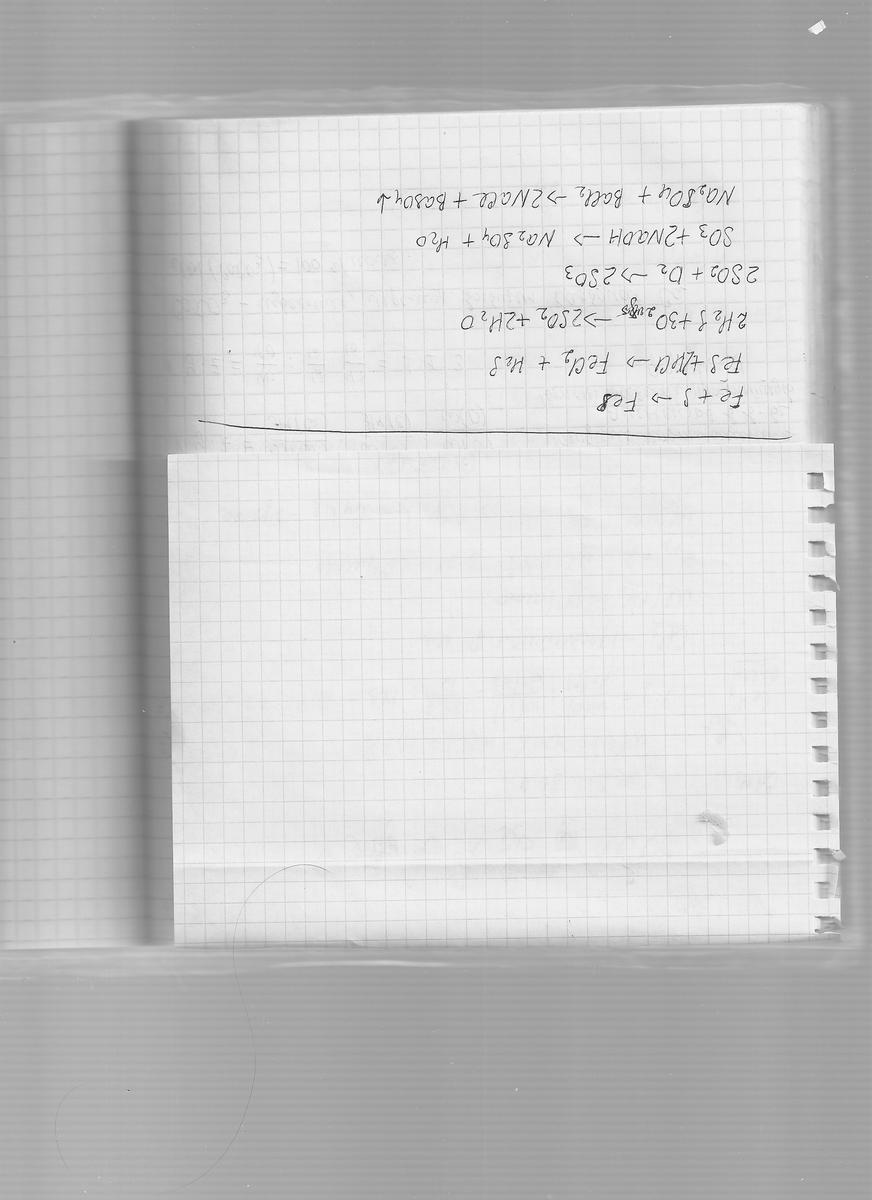 Fe + S → FeS
FeS + 2HCl → FeCl₂ + H₂S
2H₂S + 3O₂ → 2SO₂ + 2H₂O
2SO₂ + O₂ → 2SO₃
SO₃ + 2NaOH → Na₂SO₄ + H₂O
Na₂SO₄ + BaCl₂ → 2NaCl + BaSO₄↓